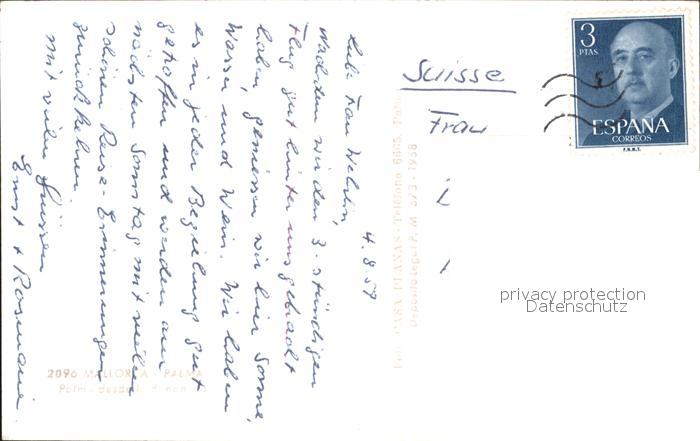 4.8.59
Liebe Frau Wehrlin,
Nachdem wir den 3-stündigen
Flug gut hinter uns gebracht
haben, geniessen wir hier Sonne,
Wasser und Wein. Wir haben
es in jeder Beziehung gut
getroffen und werden am
nächsten Samstag mit vielen
schönen Reise-Erinnerungen
zurückkehren.
Mit vielen Grüssen
Ernst + Rosmarie.
Suisse
Frau
3
PTAS
ESPAÑA
CORREOS
F.N.M.T.
CASA PLANAS - Teléfono
Depósito Legal P. M. 573-1958
2096 MALLORCA - PALMA
privacy protection
Datenschutz